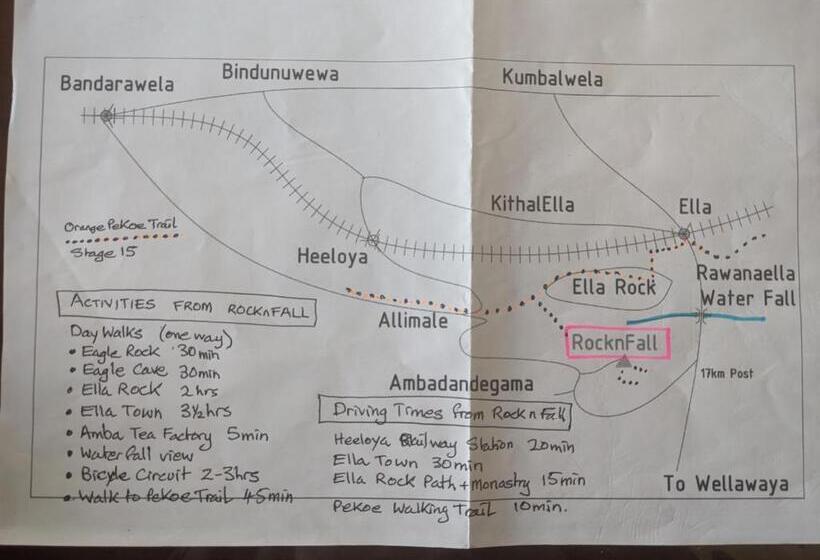 Bandarawela
Bindunuwewa
Kumbalwela
KithalElla
Ella
Orange Pekoe Trail
Stage 15
Heeloya
Ella Rock
Rawanaella
Water Fall
Allimale
RocknFall
17km Post
Ambadandegama
To Wellawaya
ACTIVITIES FROM ROCKnFALL
Day Walks (one way)
• Eagle Rock 30min
• Eagle Cave 30min
• Ella Rock 2hrs
• Ella Town 3½hrs
• Amba Tea Factory 5min
• Waterfall view
• Bicycle Circuit 2-3hrs
• Walk to Pekoe Trail 45min
Driving Times from RocknFall
Heeloya Railway Station 20min
Ella Town 30min
Ella Rock Path + monastry 15min
Pekoe Walking Trail 10min.